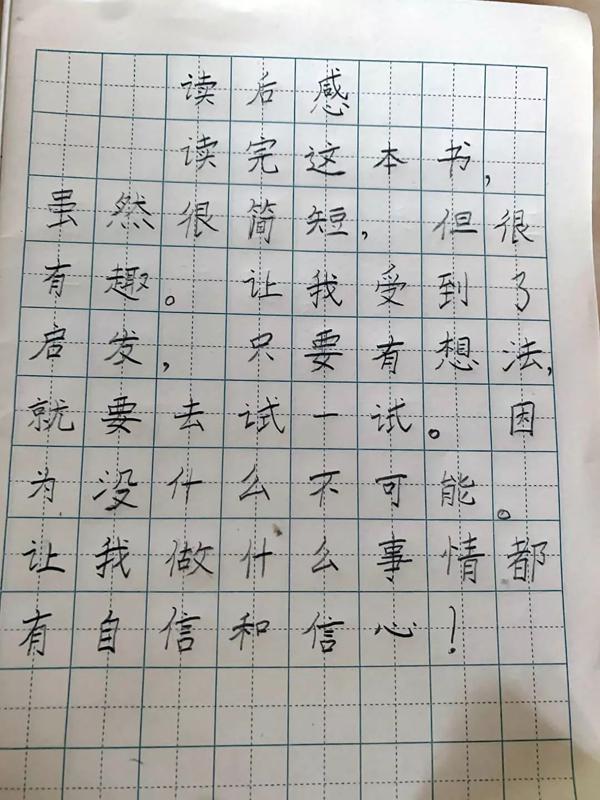 读后感
读完这本书,
虽然很简短, 但很
有趣。让我受到了
启发, 只要有想法,
就要去试一试。因
为没什么不可能。
让我做什么事情都
有自信和信心!